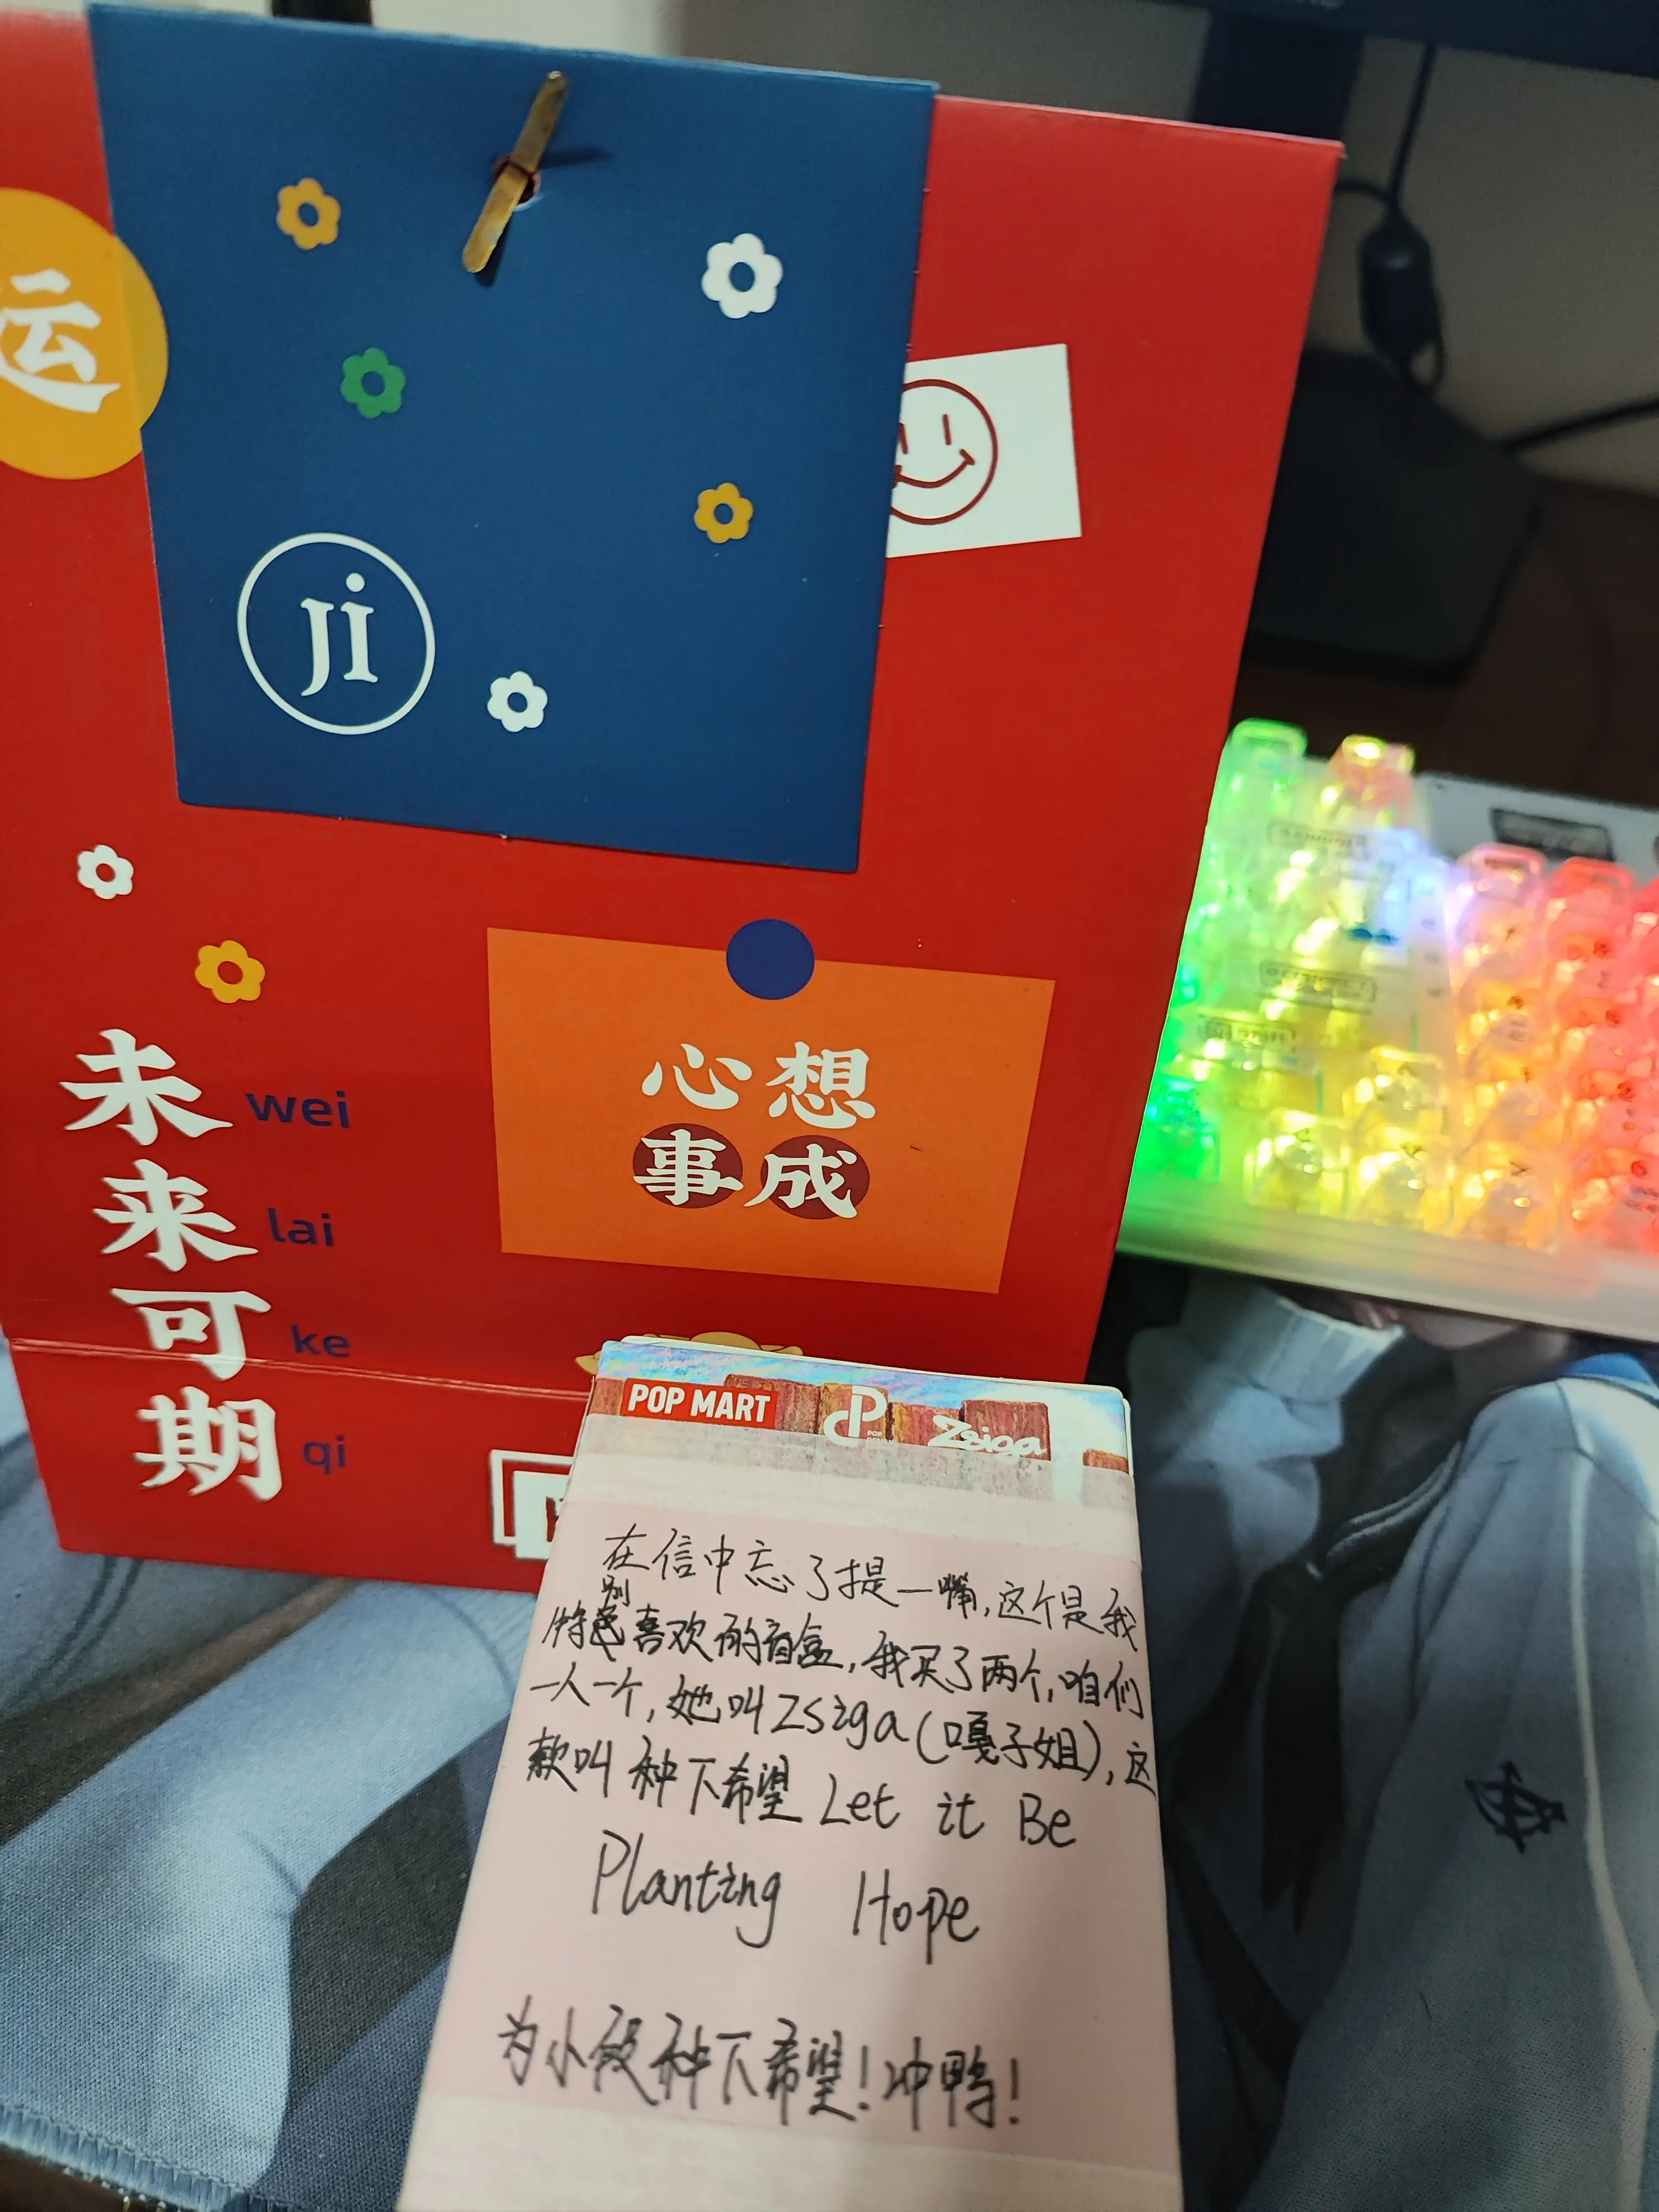 运
ji
未 wei
来 lai
可 ke
期 qi
心想
事成
POP MART
POP
Zsiga
在信中忘了提一嘴,这个是我
特别喜欢的盲盒,我买了两个,咱们
一人一个,她叫Zsiga(嘎子姐),这
款叫种下希望 Let it Be
Planting Hope
为小段种下希望!冲鸭!